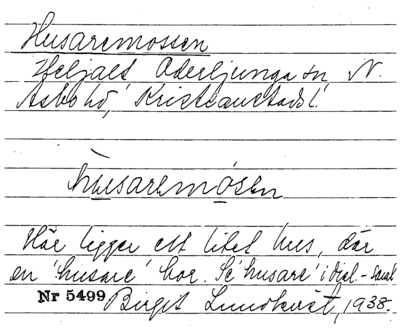 Husaremossen
Heljalt Oderljunga sn N.
Asbo hd, Kristianstads l.
husaremosen
Här ligger ett litet hus, där
en 'husare' bor. Se 'husare' i dial-saml
Nr 5499 Birgit Lundkvist, 1938.